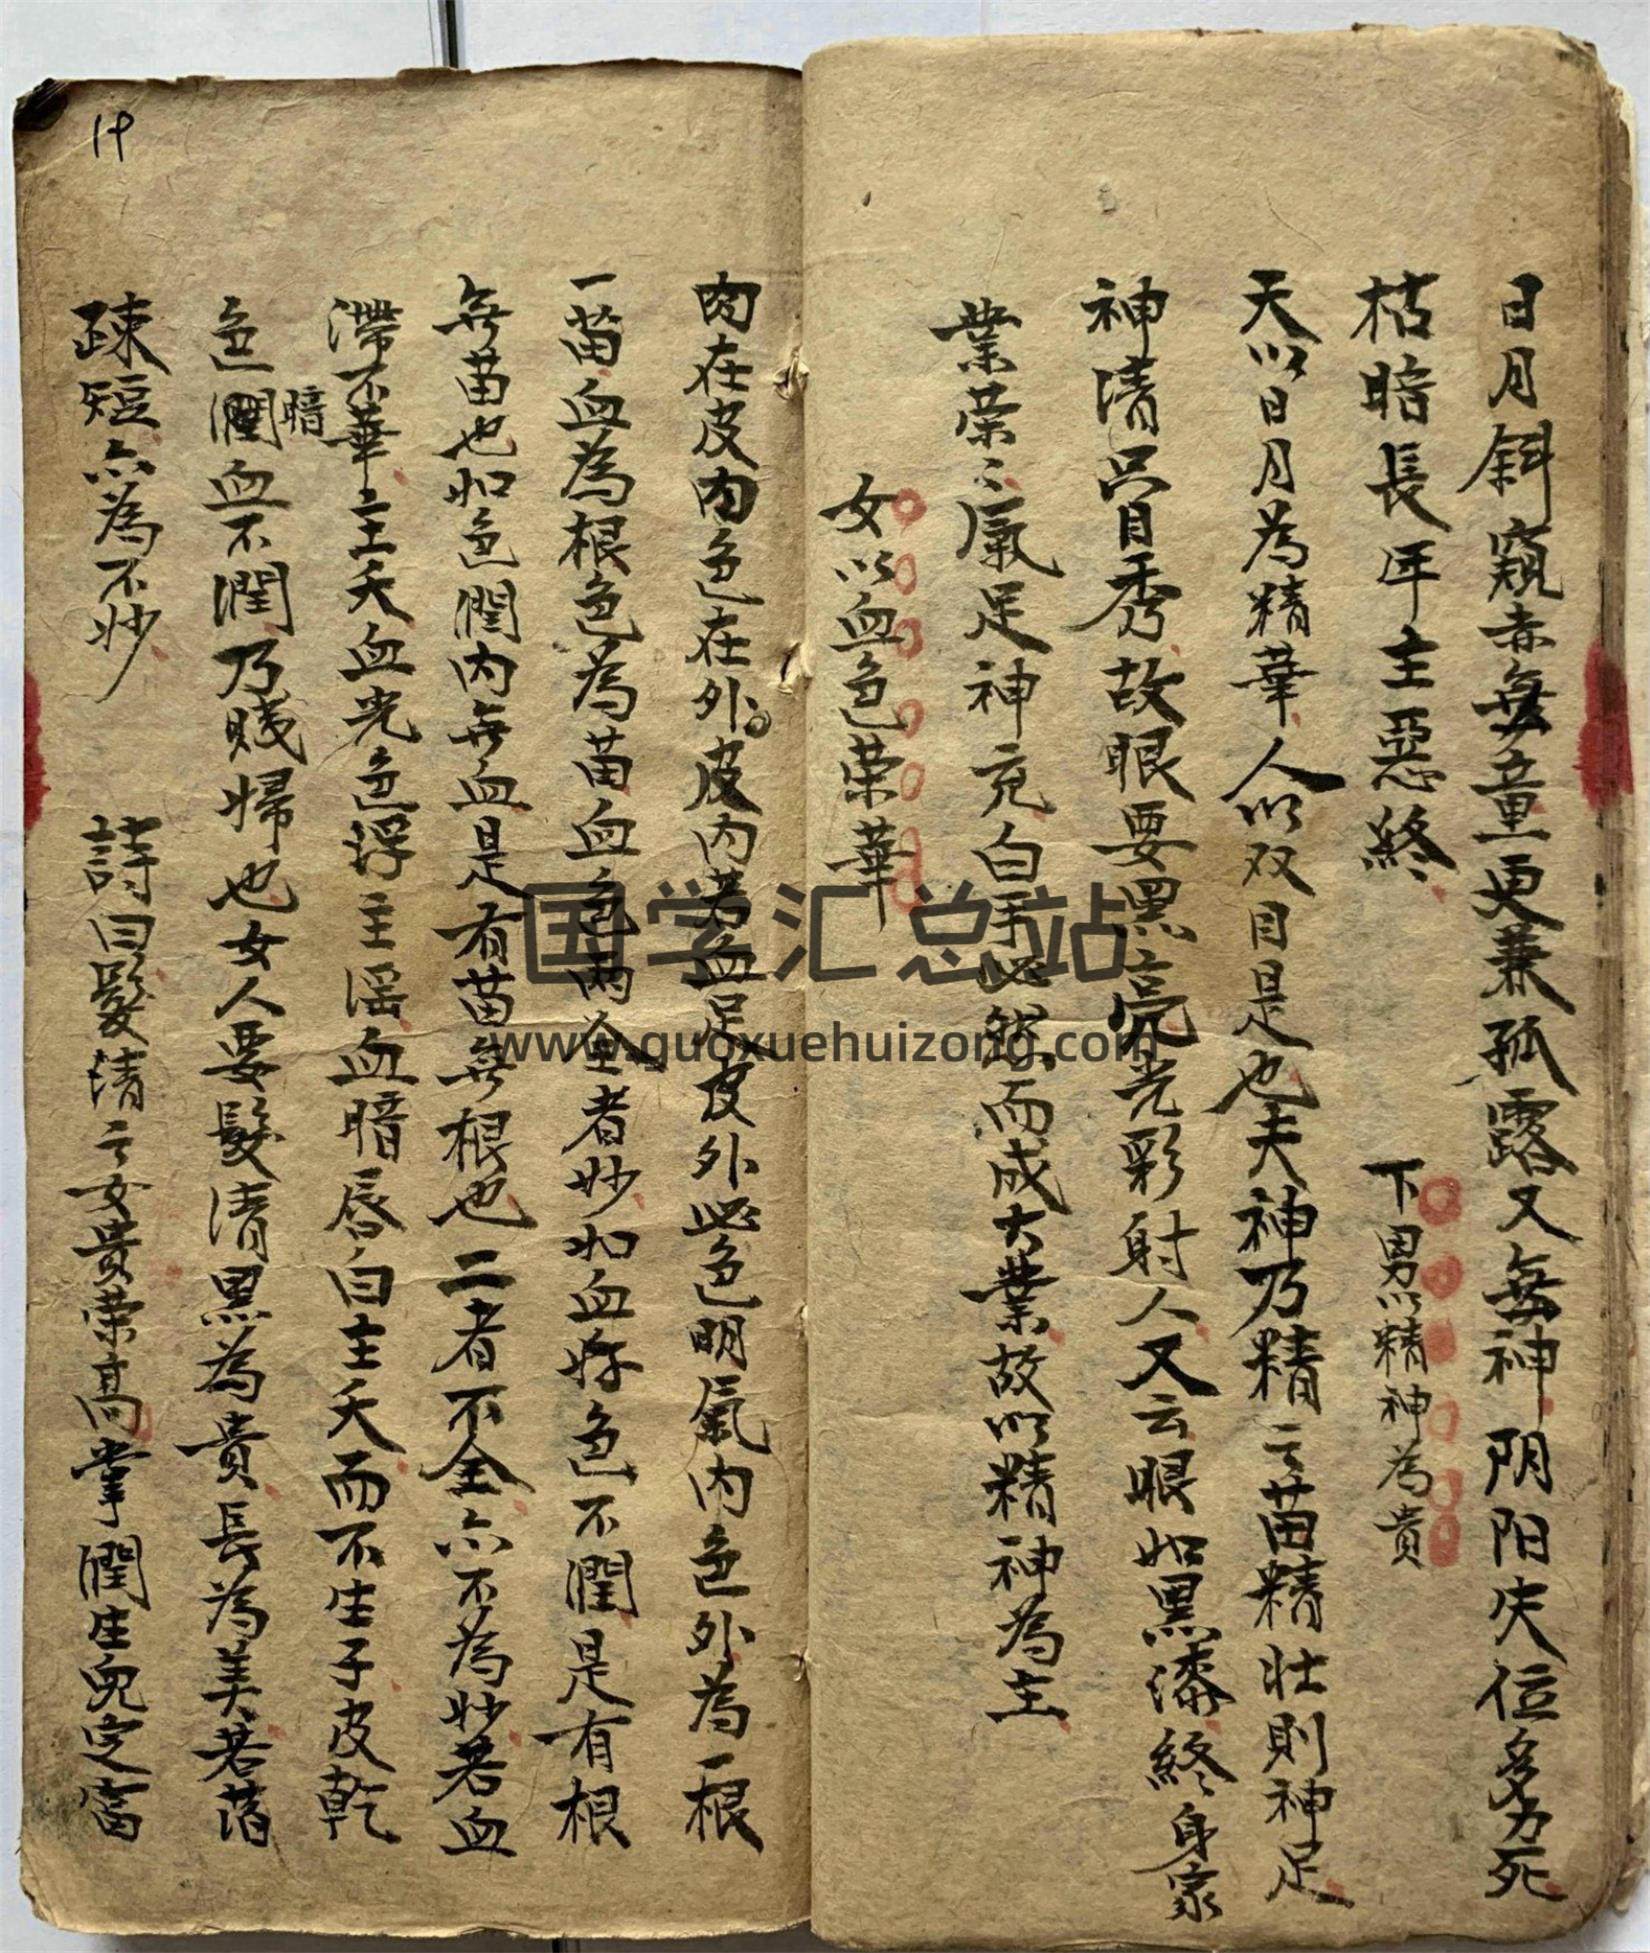 日月斜窺赤無童更兼孤露又無神阴阳失位多力死
枯暗長年主惡終
下男以精神為貴
天以日月為精華人以双目是也夫神乃精之苗精壯則神足
神清只目秀故眼要黑亮光彩射人又云眼如黑漆終身家
業荣〻氣足神充白手必然而成大業故以精神為主
女以血色荣華
肉在皮内色在外皮内若血足皮外必色明氣内色外為一根
一苗血為根色為苗血色兩全者妙如血好色不潤是有根
無苗也如色潤内無血是有苗無根也二者不全亦不為妙若血
滯不華主夭血光色浮主滛血暗唇白主夭而不生子皮乾
色潤血不潤乃賤婦也女人要髮清黑為貴長為美若落
暗
疎短亦為不妙
詩曰髮清〻女貴荣高掌潤生兒定富
19
国学汇总站
www.guoxuehuizong.com